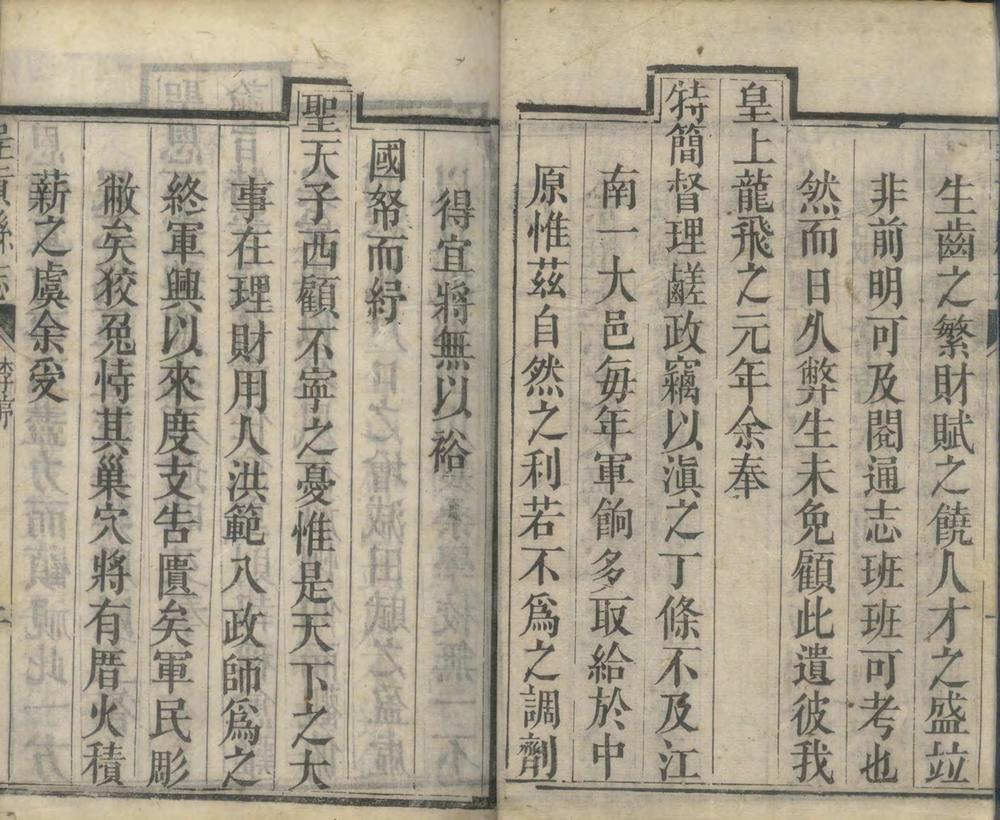 生齒之繁財賦之饒人才之盛竝
非前明可及閱通志班班可考也
然而日久弊生未免顧此遺彼我
皇上龍飛之元年余奉
特簡督理鹺政竊以滇之丁條不及江
南一大邑每年軍餉多取給於中
原惟茲自然之利若不爲之調劑
得宜將無以裕
國帑而紓
聖天子西顧不寧之憂惟是天下之大
事在理財用人洪範八政師爲之
終軍興以來度支告匱矣軍民彫
敝矣狡兔恃其巢穴將有厝火積
薪之虞余爰
李序